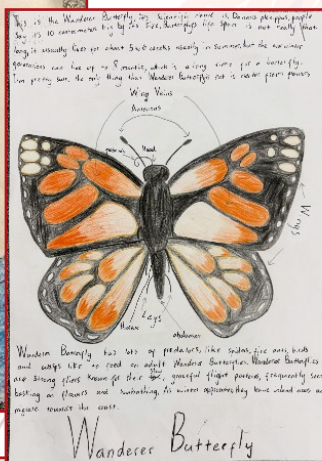 This is the Wanderer Butterfly, its scientific name is Danaus plexippus, people
say its 10 centimeter big
usually lives for about 5 weeks usually in summer, but the winter
generations can live up to 8 months, which is a long time for a butterfly.
I'm pretty sure the only thing that Wanderer Butterfly eat is nectar from flowers
Wing Veins
Antennas
Head
Wings
Thorax
Legs
abdomen
Wanderer Butterfly has lots of predators, like spiders, fire ants, birds
and wasps like to feed on adult Wanderer Butterflies. Wanderer Butterflies
are strong fliers known for their slow, graceful flight patterns, frequently seen
basking on flowers and sunbathing. As winter approaches, they leave inland areas and
migrate towards the coast.
Wanderer Butterfly